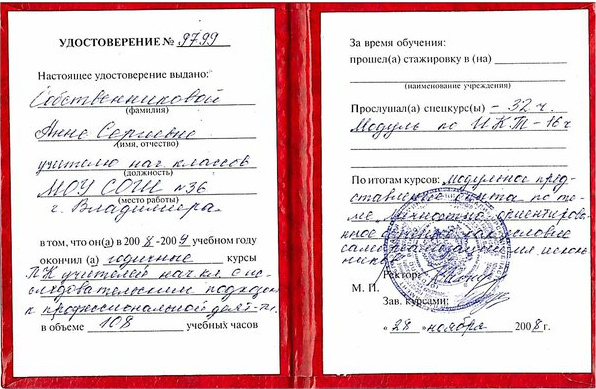 УДОСТОВЕРЕНИЕ № 9799
Настоящее удостоверение выдано:
Собственниковой
(фамилия)
Анне Сергеевне
(имя, отчество)
учителю нач. классов
(должность)
МОУ СОШ №36
(место работы)
г. Владимира
в том, что он(а) в 2008 -2009 учебном году
окончил (а) годичные курсы
ПК учителей нач кл. с ис-
следовательским подходом
к профессиональной деят-ти.
в объеме 108 учебных часов
За время обучения:
прошел(а) стажировку в (на)
(наименование учреждения)
Прослушал(а) спецкурс(ы) - 32 ч.
Модуль по ИКТ - 16 ч
По итогам курсов: модульное пред-
ставление опыта по те-
ме
само
ников
Ректор:
М. П.
Зав. курсами:
« 28 » ноября 2008 г.